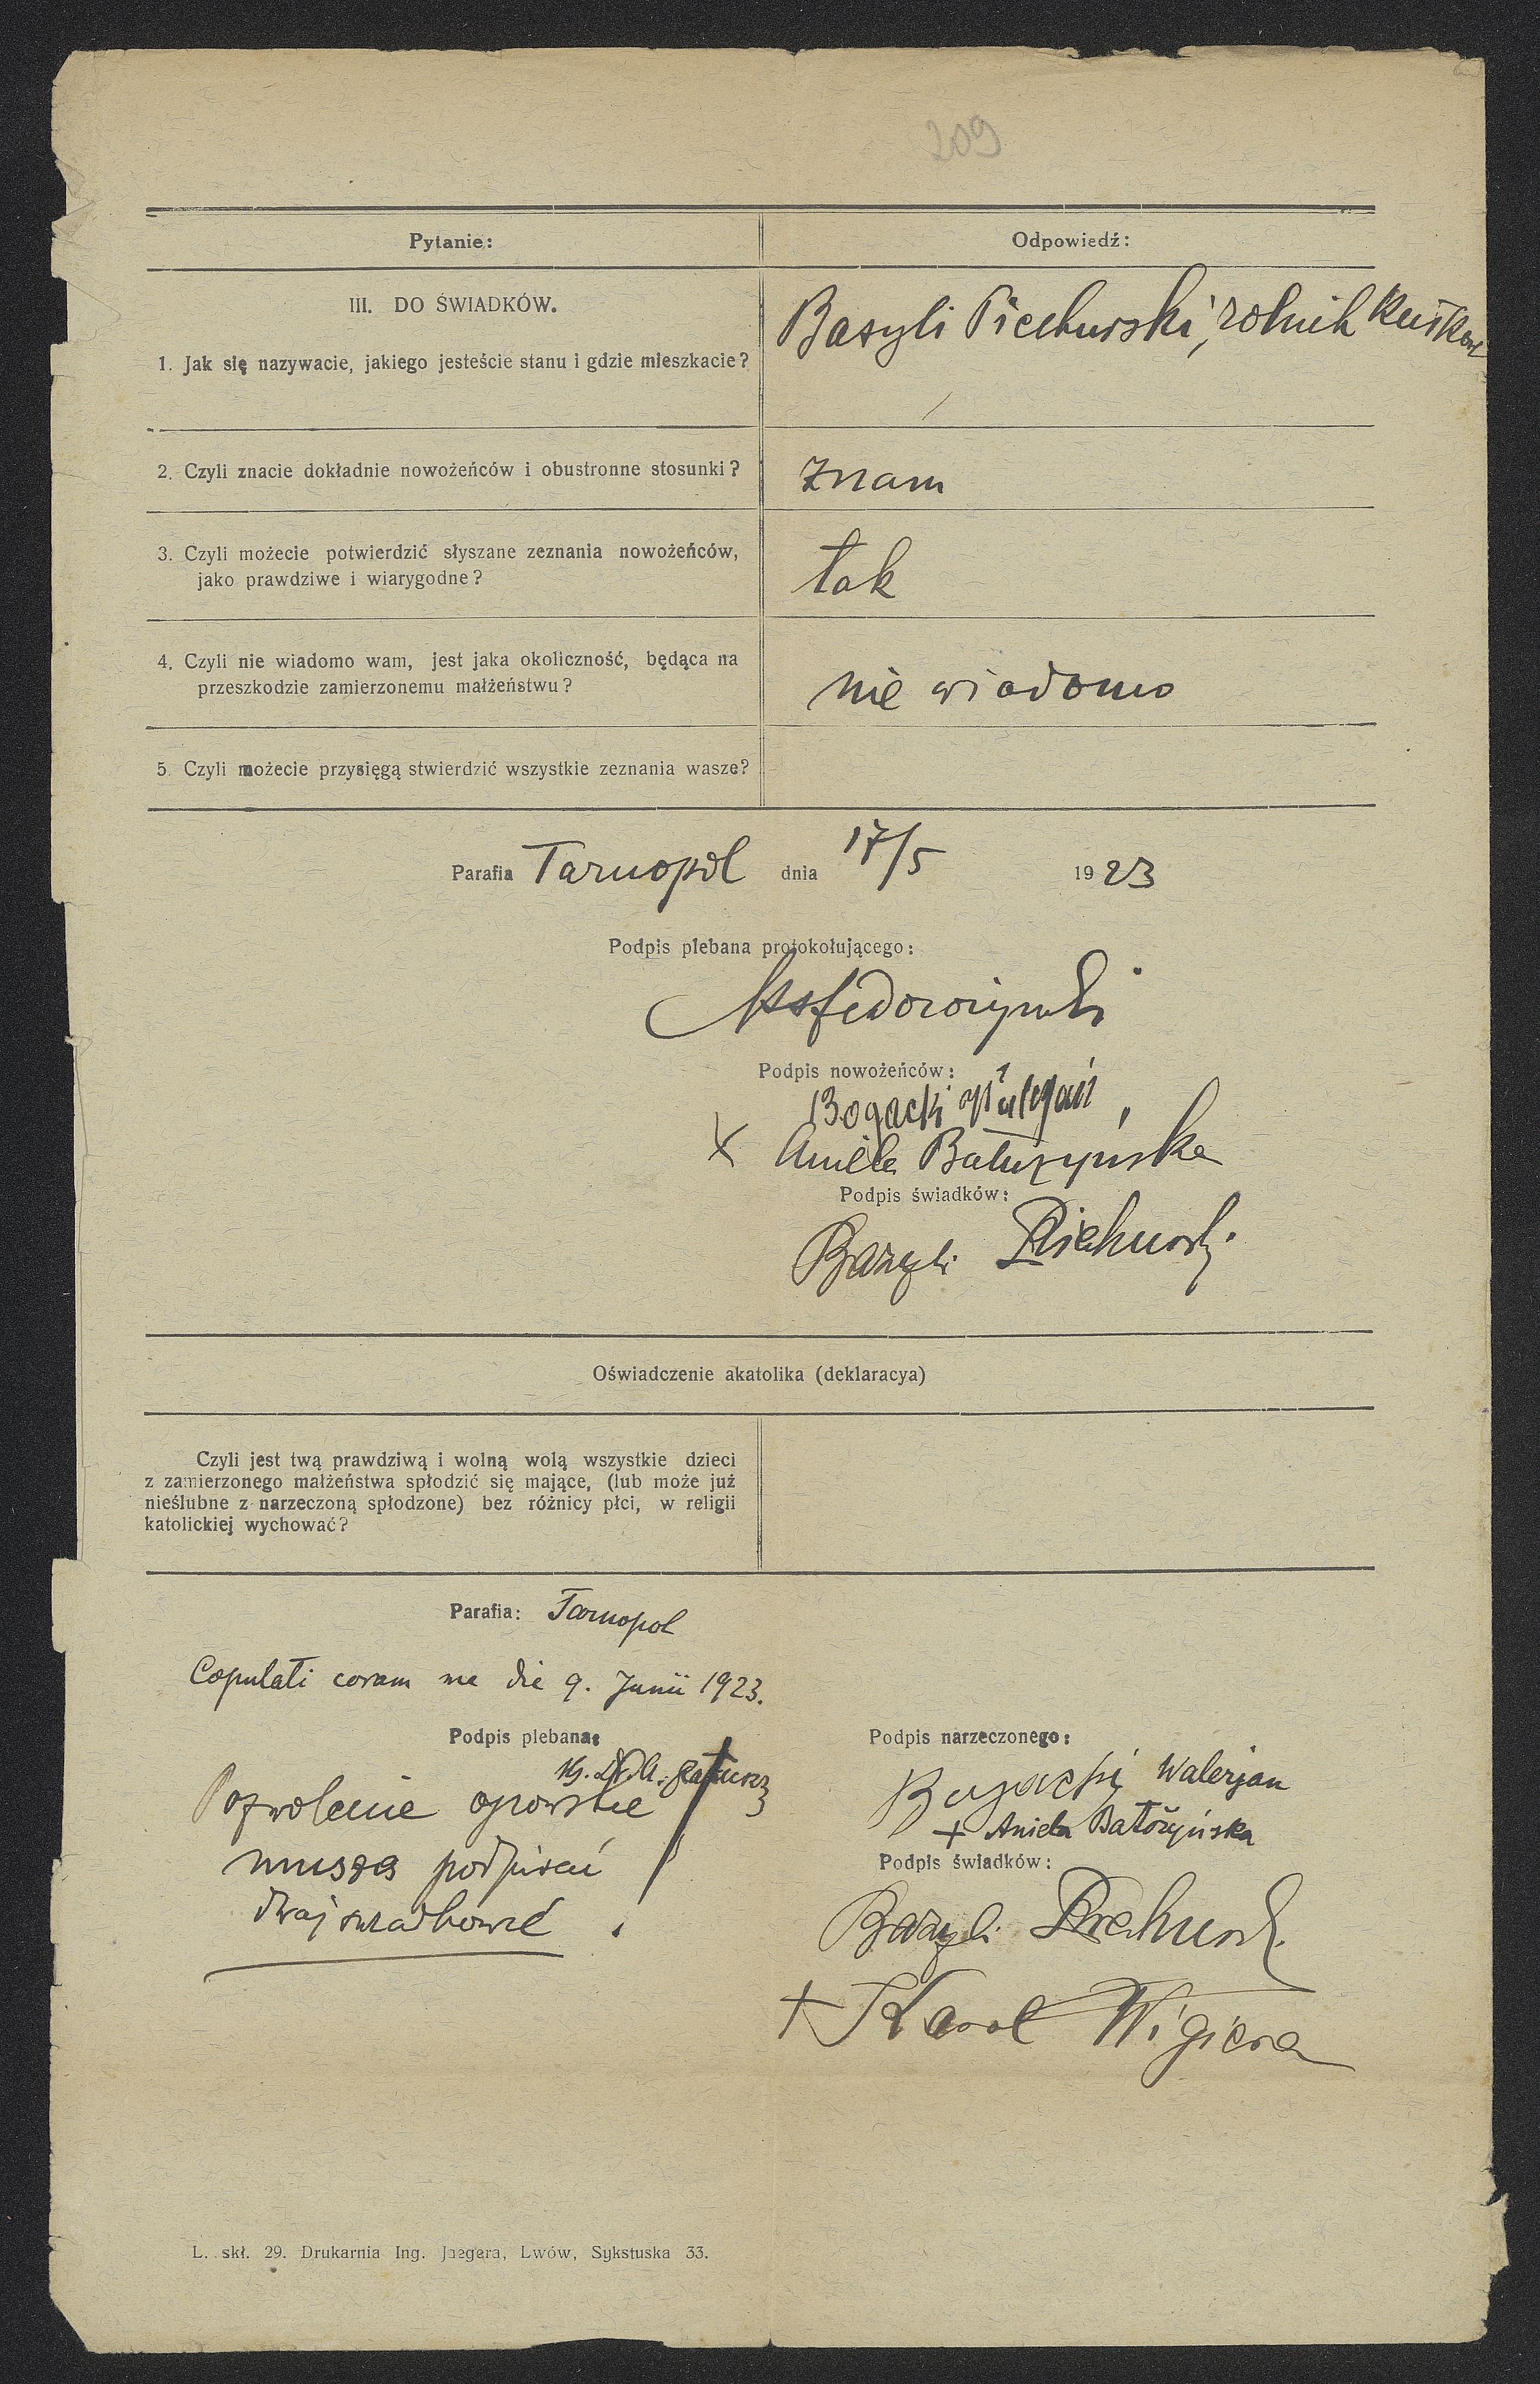 209
Pytanie:
Odpowiedź:
III. DO ŚWIADKÓW.
1. Jak się nazywacie, jakiego jesteście stanu i gdzie mieszkacie?
Basyli Piechurski, rolnik
2. Czyli znacie dokładnie nowożeńców i obustronne stosunki?
znam
3. Czyli możecie potwierdzić słyszane zeznania nowożeńców,
jako prawdziwe i wiarygodne?
tak
4. Czyli nie wiadomo wam, jest jaka okoliczność, będąca na
przeszkodzie zamierzonemu małżeństwu?
nie wiadomo
5. Czyli możecie przysięgą stwierdzić wszystkie zeznania wasze?
Parafia Tarnopol dnia 17/5 1923
Podpis plebana protokołującego:
Podpis nowożeńców:
Bogacki
X Aniela Batużyńska
Podpis świadków:
Bazyli
Oświadczenie akatolika (deklaracya)
Czyli jest twą prawdziwą i wolną wolą wszystkie dzieci
z zamierzonego małżeństwa spłodzić się mające, (lub może już
nieślubne z narzeczoną spłodzone) bez różnicy płci, w religii
katolickiej wychować?
Parafia: Tarnopol
Copulati coram me die 9. Junii 1923.
Podpis plebana:
Pozwolenie ojcowskie
muszą podpisać
dwaj świadkowie !
Podpis narzeczonego:
Bogacki Walerjan
+ Aniela Batożyńska
Podpis świadków:
Bazyli
+ Karol Wigiera
L. skł. 29. Drukarnia Ing. Jaegera, Lwów, Sykstuska 33.